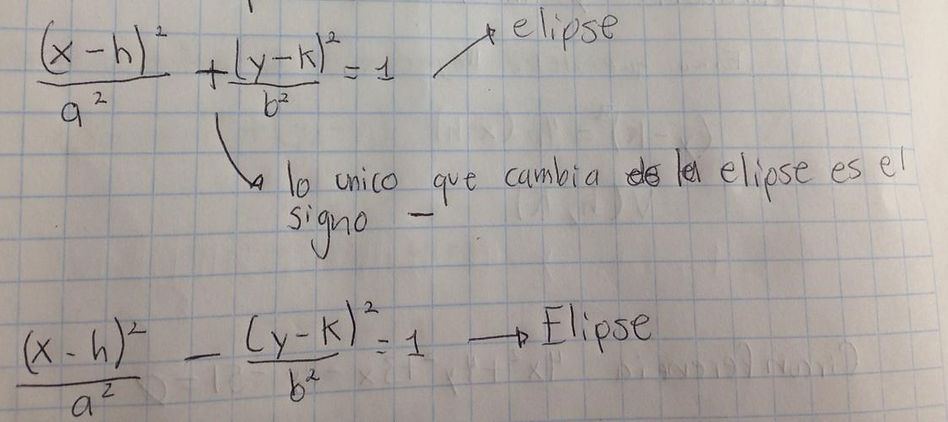 (x-h)²/a² + (y-k)²/b² = 1 → elipse
lo unico que cambia de la elipse es el
signo -
(x-h)²/a² - (y-k)²/b² = 1 → Elipse